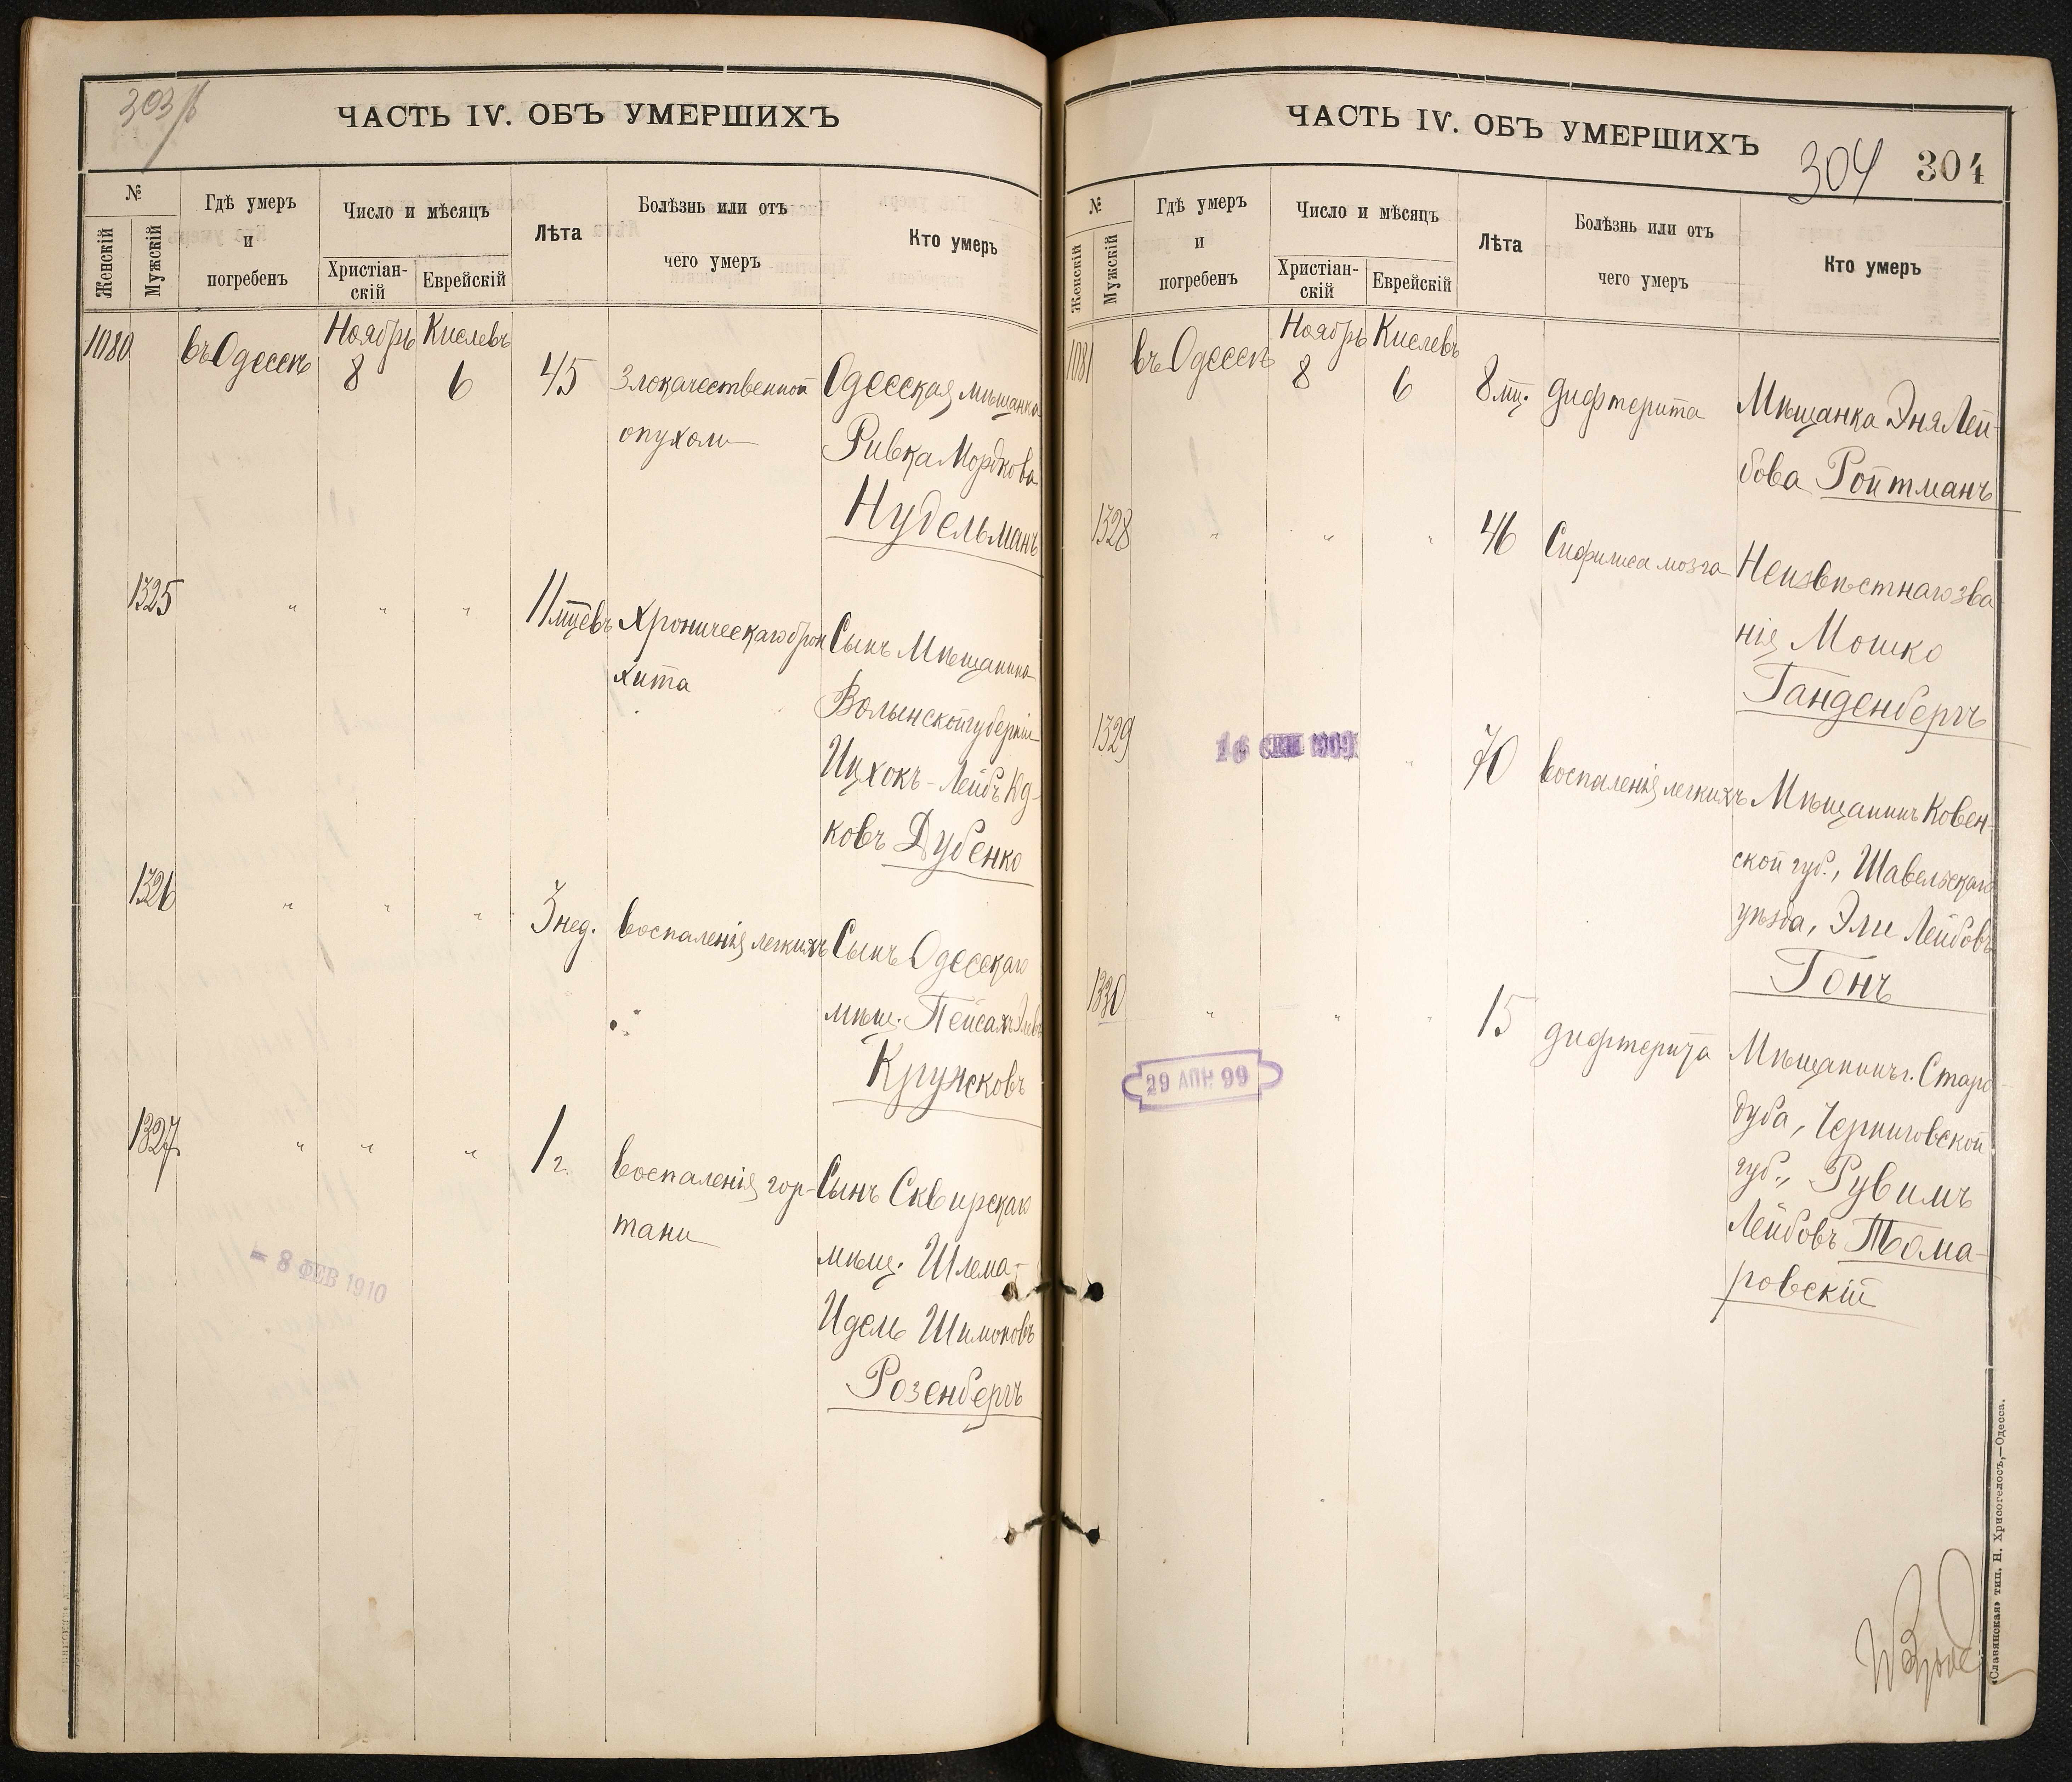 303
ЧАСТЬ IV. ОБЪ УМЕРШИХЪ
№
Женскій
Мужскій
Гдѣ умеръ
и
погребенъ
Число и мѣсяцъ
Христіан-
скій
Еврейскій
Лѣта
Болѣзнь или отъ
чего умеръ
Кто умеръ
1080 въ Одессѣ Ноябрь 8 Кислевъ 6 45 Злокачественной Одесская мѣщанка
опухоли Ривка Мордкова
Нудельманъ
1325 " " " 11 мцевъ Хроническаго брон Сынъ Мѣщанина
хита Волынской губерніи
Ицхокъ-Лейбъ Юд-
ковъ Дубенко
1326 " " " 3 нед. Воспаленія легкихъ Сынъ Одесскаго
мѣщ. Пейсахъ
Кружковъ
1327 " " " 1 г. Воспаленія гор- Сынъ Сквирскаго
тани мѣщ. Шлема-
Идель Шимоновъ
Розенбергъ
- 8 ФЕВ 1910
ЧАСТЬ IV. ОБЪ УМЕРШИХЪ
304 304
№
Женскій
Мужскій
Гдѣ умеръ
и
погребенъ
Число и мѣсяцъ
Христіан-
скій
Еврейскій
Лѣта
Болѣзнь или отъ
чего умеръ
Кто умеръ
1081 въ Одессѣ Ноябрь 8 Кислевъ 6 8 мц. Дифтерита Мѣщанка Эня Лей-
бова Ройтманъ
1328 " " " 46 Сифилиса мозга Неизвѣстнаго зва
нія Мошко
Ганденбергъ
1329 16 1909 " 70 Воспаленія легкихъ Мѣщанинъ Ковен-
ской губ., Шавельскаго
уѣзда, Эли Лейбовъ
Гонъ
1330 " " " 15 Дифтерита Мѣщанинъ г. Старо
дуба, Черниговской
губ., Рувимъ
Лейбовъ Тома-
ровскій
29 АПР 99
«Славянская» тип. Н. Хрисогелосъ,—Одесса.